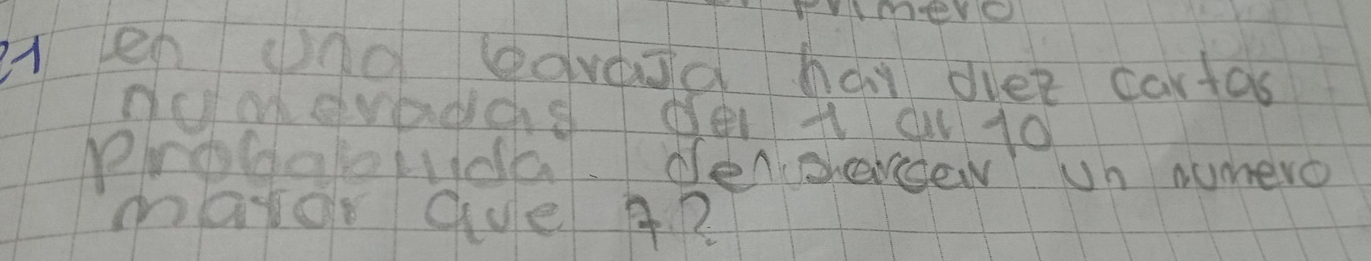 primero
21 en una baraja hay diez cartas
numeradas del 1 al 10
Probabilida. den sacar un numero
mayor que 7?